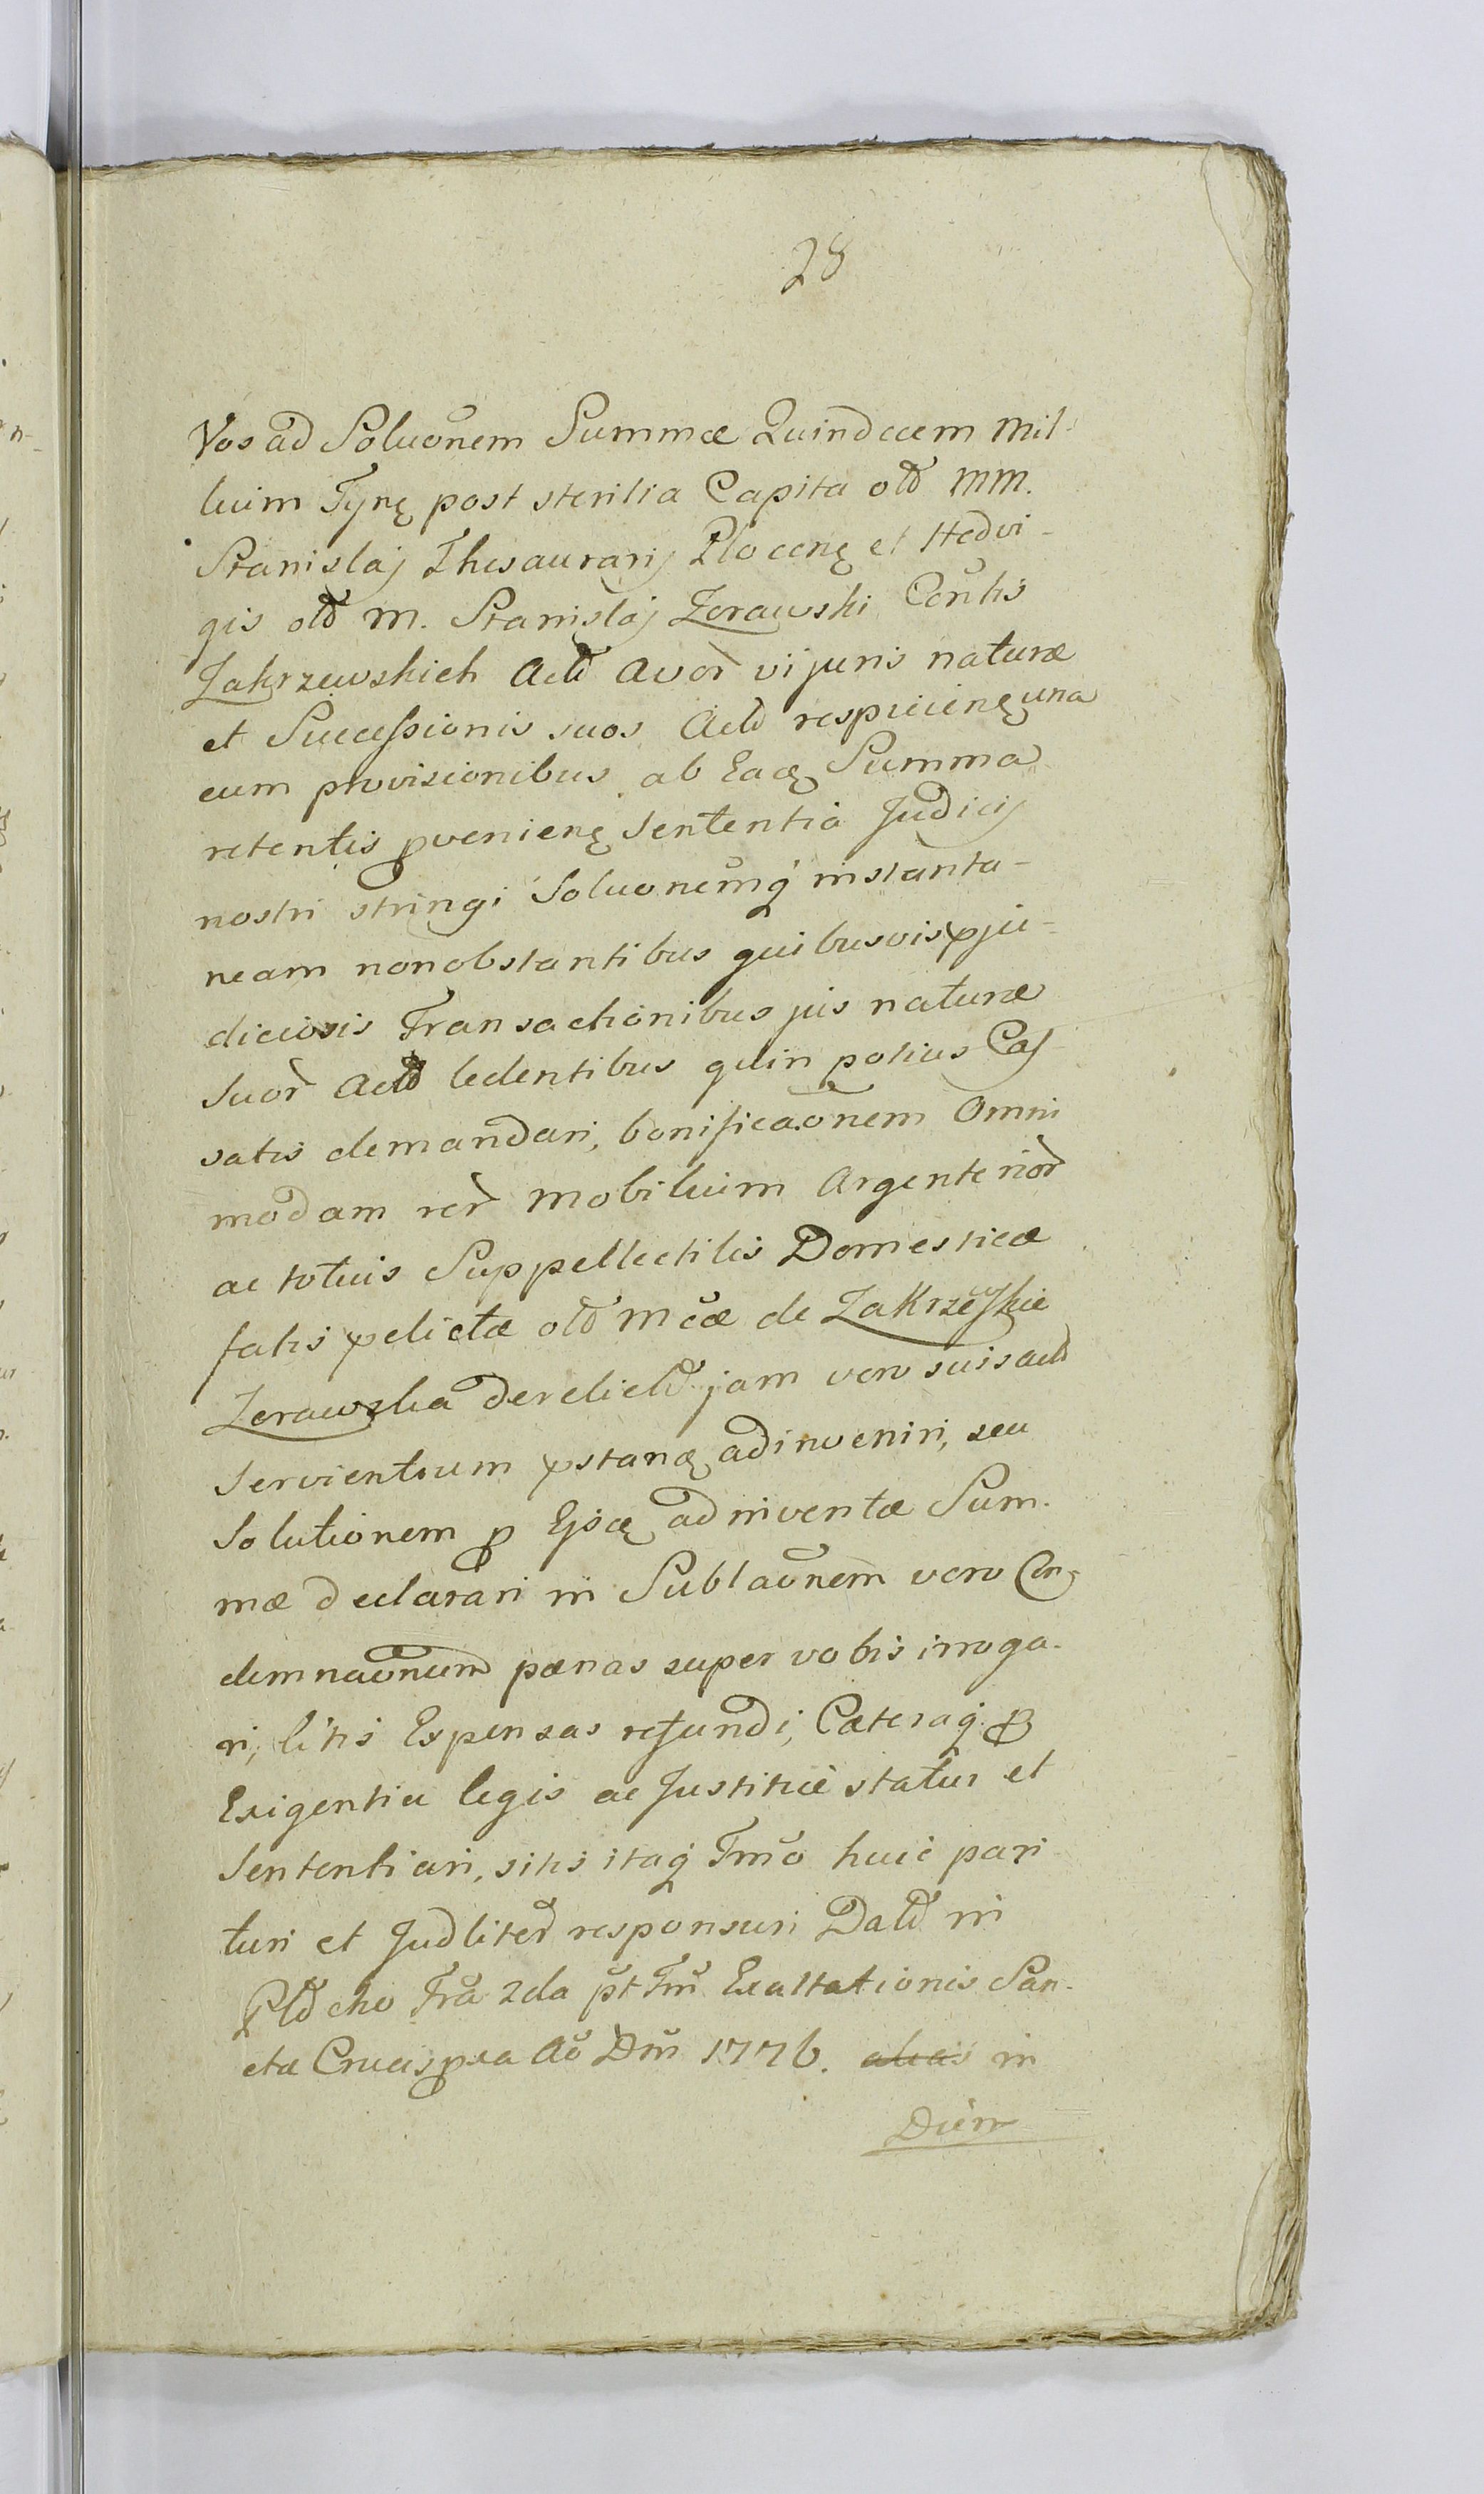 28
Vos ad Soluõnem Summæ Quindecem Mil-
lium Tynę post sterilia Capita olđ MM.
Stanislaj Thesaurarij Plocenę et Hedvi-
gis olđ M. Stanislaj Zorawski Conthis
Zakrzewskich Actđ Avor̃ vi juris naturæ
et Succeſsionis suos Actđ respicienę una
cum provisionibus ab Eadę Summa
retentis pvenienę Sententia Judicij
nostri stringi Soluonemq̃ instanta-
neam nonobstantibus quibusvis pju-
diciosis Transactionibus jus naturæ
Suor̃ Actđ ledentibus quin potius Caſ
satis demandari, bonificaõnem Omni
modam rer̃ Mobilium Argenterior̃
ac totius Suppellectilis Domesticæ
fatis pelictæ olđ Mcæ de Zakrzewſkie
Zerawska derelictđ jam vero suis actđ
Servientium pstanę adinveniri, seu
Solutionem p Ejdę adinventæ Sum-
mæ declarari in Sublaõnem vero Con-
demnaõnum pænas super vobis irroga-
ri, litis Expensas refundi, Cæteraq̃ p
Exigentia legis ac Justitiæ statui et
Sententiari, sitis itaq̃ Tmõ huic pari
turi et Judliter responsuri Datđ in
Plocko Fra 2da pt Fm̃ Exaltationis San-
ctæ Crucis pxa Aõ Dm̃ 1776. alias in
Diem